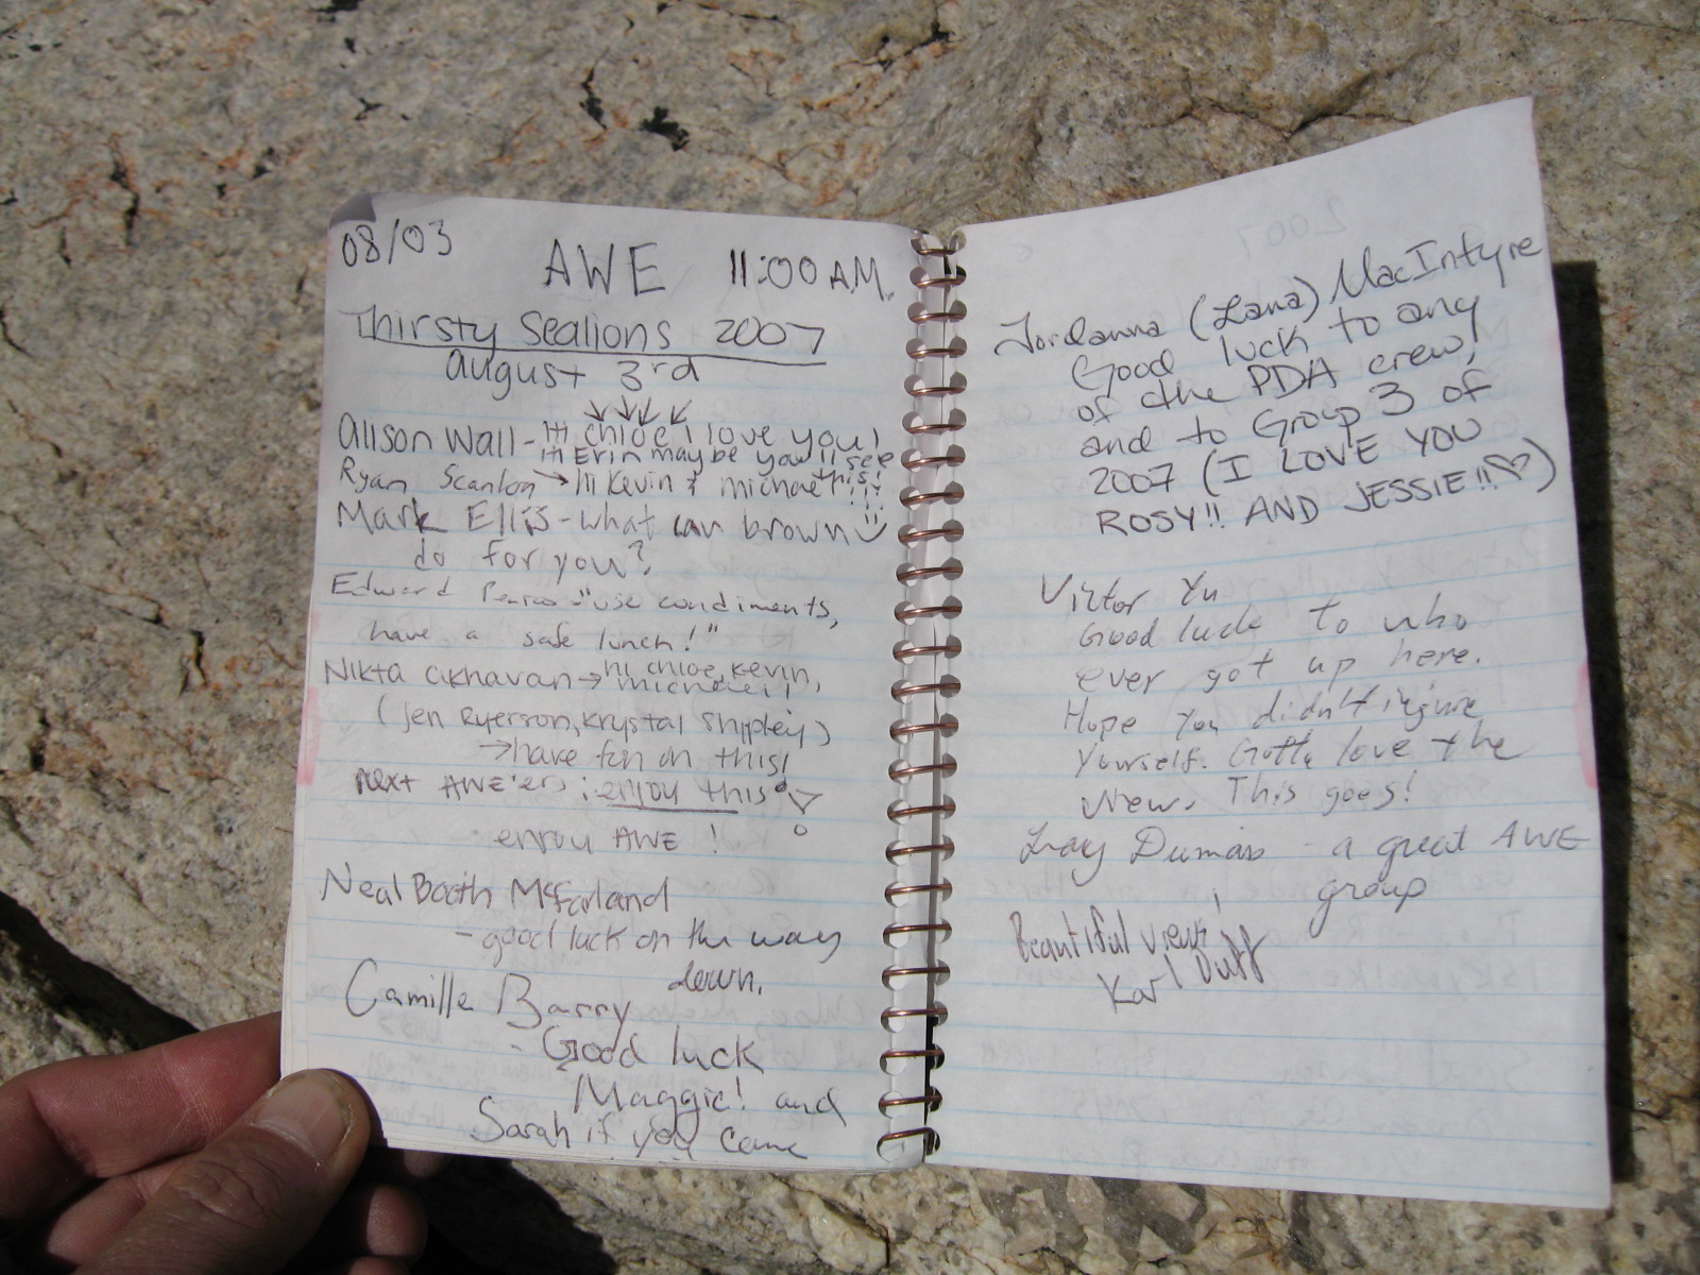 08/03
AWE 11:00 A.M.
Thirsty Sealions 2007
august 3rd
Alison Wall - hi chloe i love you!
hi Erin maybe you'll see
this!
Ryan Scanlon → hi Kevin & michael!!!
Mark Ellis - what can brown
do for you?
Edward "use condiments,
have a safe lunch!"
Nikta → hi chloe, kevin,
michael!
(jen Ryerson, Krystal Shipley)
→ have fun on this!
next AWE'ers : enjoy this
enjoy AWE !
Neal Booth McFarland
- good luck on the way
down.
Camille Barry
- Good luck
Maggie! and
Sarah if you came
Jordanna (Lana) MacIntyre
Good luck to any
of the PDA crew!
and to Group 3 of
2007 (I LOVE YOU
ROSY!! AND JESSIE!! ♡)
Victor Yu
Good luck to who
ever got up here.
Hope you didn't injure
yourself. Gotta love the
view. This goes!
Dumas - a great AWE
group
Beautiful view!
Karl Duff